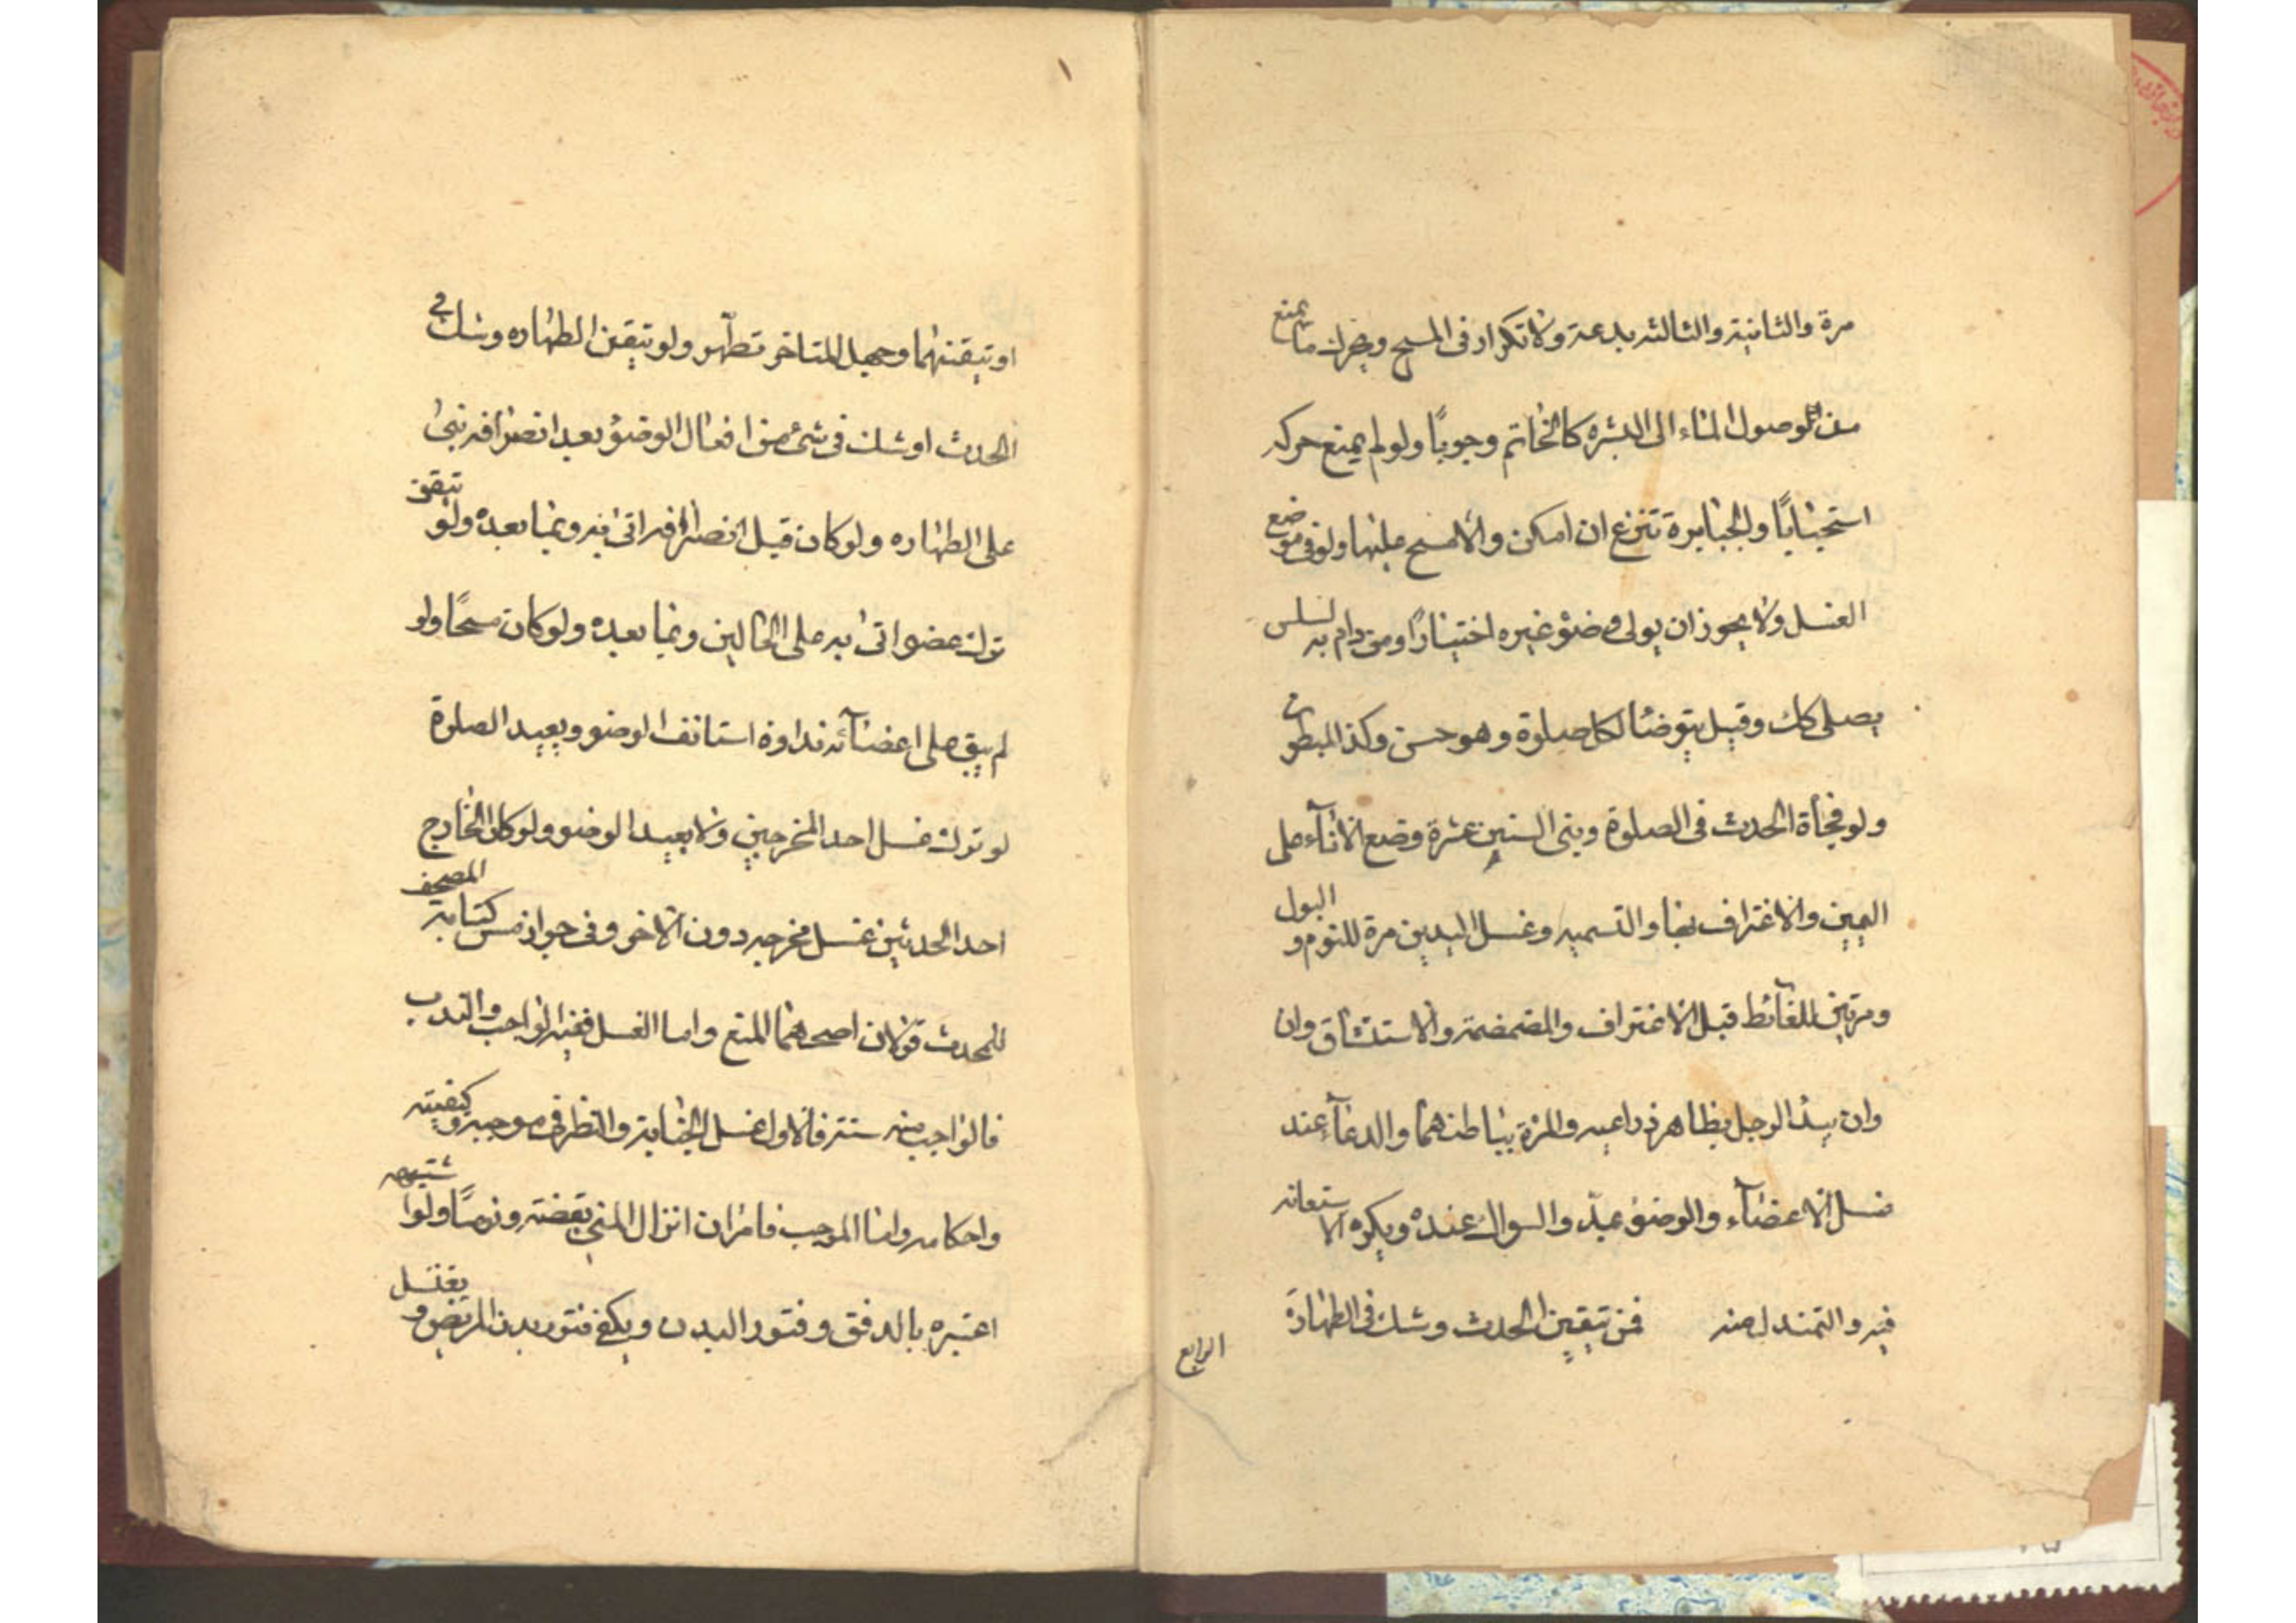 مرة والثانية والثالثه بدعة ولا تكرار فى المسح ويحرك ما يمنع
من وصول الماء الى البشره كالخاتم وجوبًا ولو لم يمنع حركه
استحبابًا والجبايرة تنزع ان امكن والا مسح عليها ولو فى موضع
الغسل ولا يجوز ان يولى وضؤ غيره اختيارًا ومن دام به السلس
يصلى كك وقيل يتوضا لكل صلوة وهو حسن وكذا المبطون
ولو فجأة الحدث فى الصلوة وبنى السنن عشرة وضع الاناء على
اليمين والاغتراف بها والتسميه وغسل اليدين مرة للنوم و البول
ومرتين للغائط قبل الاغتراف والمضمضة والاستنشاق وان
وان يبدأ الرجل بظاهر ذراعيه والمرءة بباطنهما والدعآء عند
غسل الاعضآء والوضؤ بمدّ والسواك عنده ويكره الاستعانه
فيه والتمندل منه فمن تيقين الحدث وشك فى الطهارة
الرابع
او تيقنهما وجهل المتاخر تطهر ولو تيقن الطهاره وشك فى
الحدث او شك فى شئ من افعال الوضؤ بعد انصرافه بنى
على الطهاره ولو كان قبل انصرافه اتى به وبما بعده ولو تيقن
ترك عضو اتى به على الحالين وبما بعده ولو كان مسحًا ولو
لم يبق على اعضآئه نداوة استانف الوضو ويعيد الصلوة
لو ترك غسل احد المخرجين ولا يعيد الوضو ولو كان الخارج
احد الحدثين غسل مخرجه دون الاخر وفى جواز مس كتابة المصحف
للمحدث قولان اصحهما المنع واما الغسل ففيه الواجب والندب
فالواجب منه ستة فالاول غسل الجنابة والنظر فى موجبه وكيفيته
واحكامه واما الموجب فامران انزال المنى يقضة ونومًا ولو اشتبهه
اعتبره بالدفق وفتور البدن ويكفى فتور بدن المريض و يغتسل